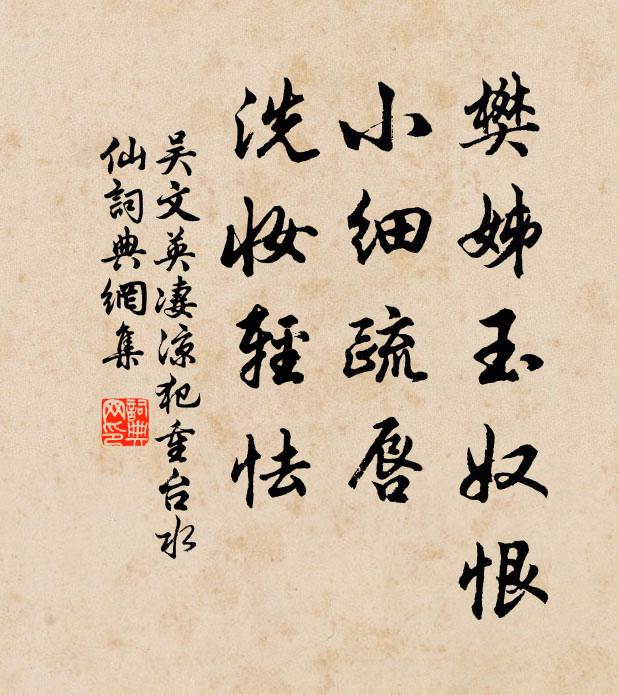 樊姊玉奴恨
小细疏唇
洗妆輕怯
吴文英凄凉犯重台水
仙詞典網集
詞典
网印